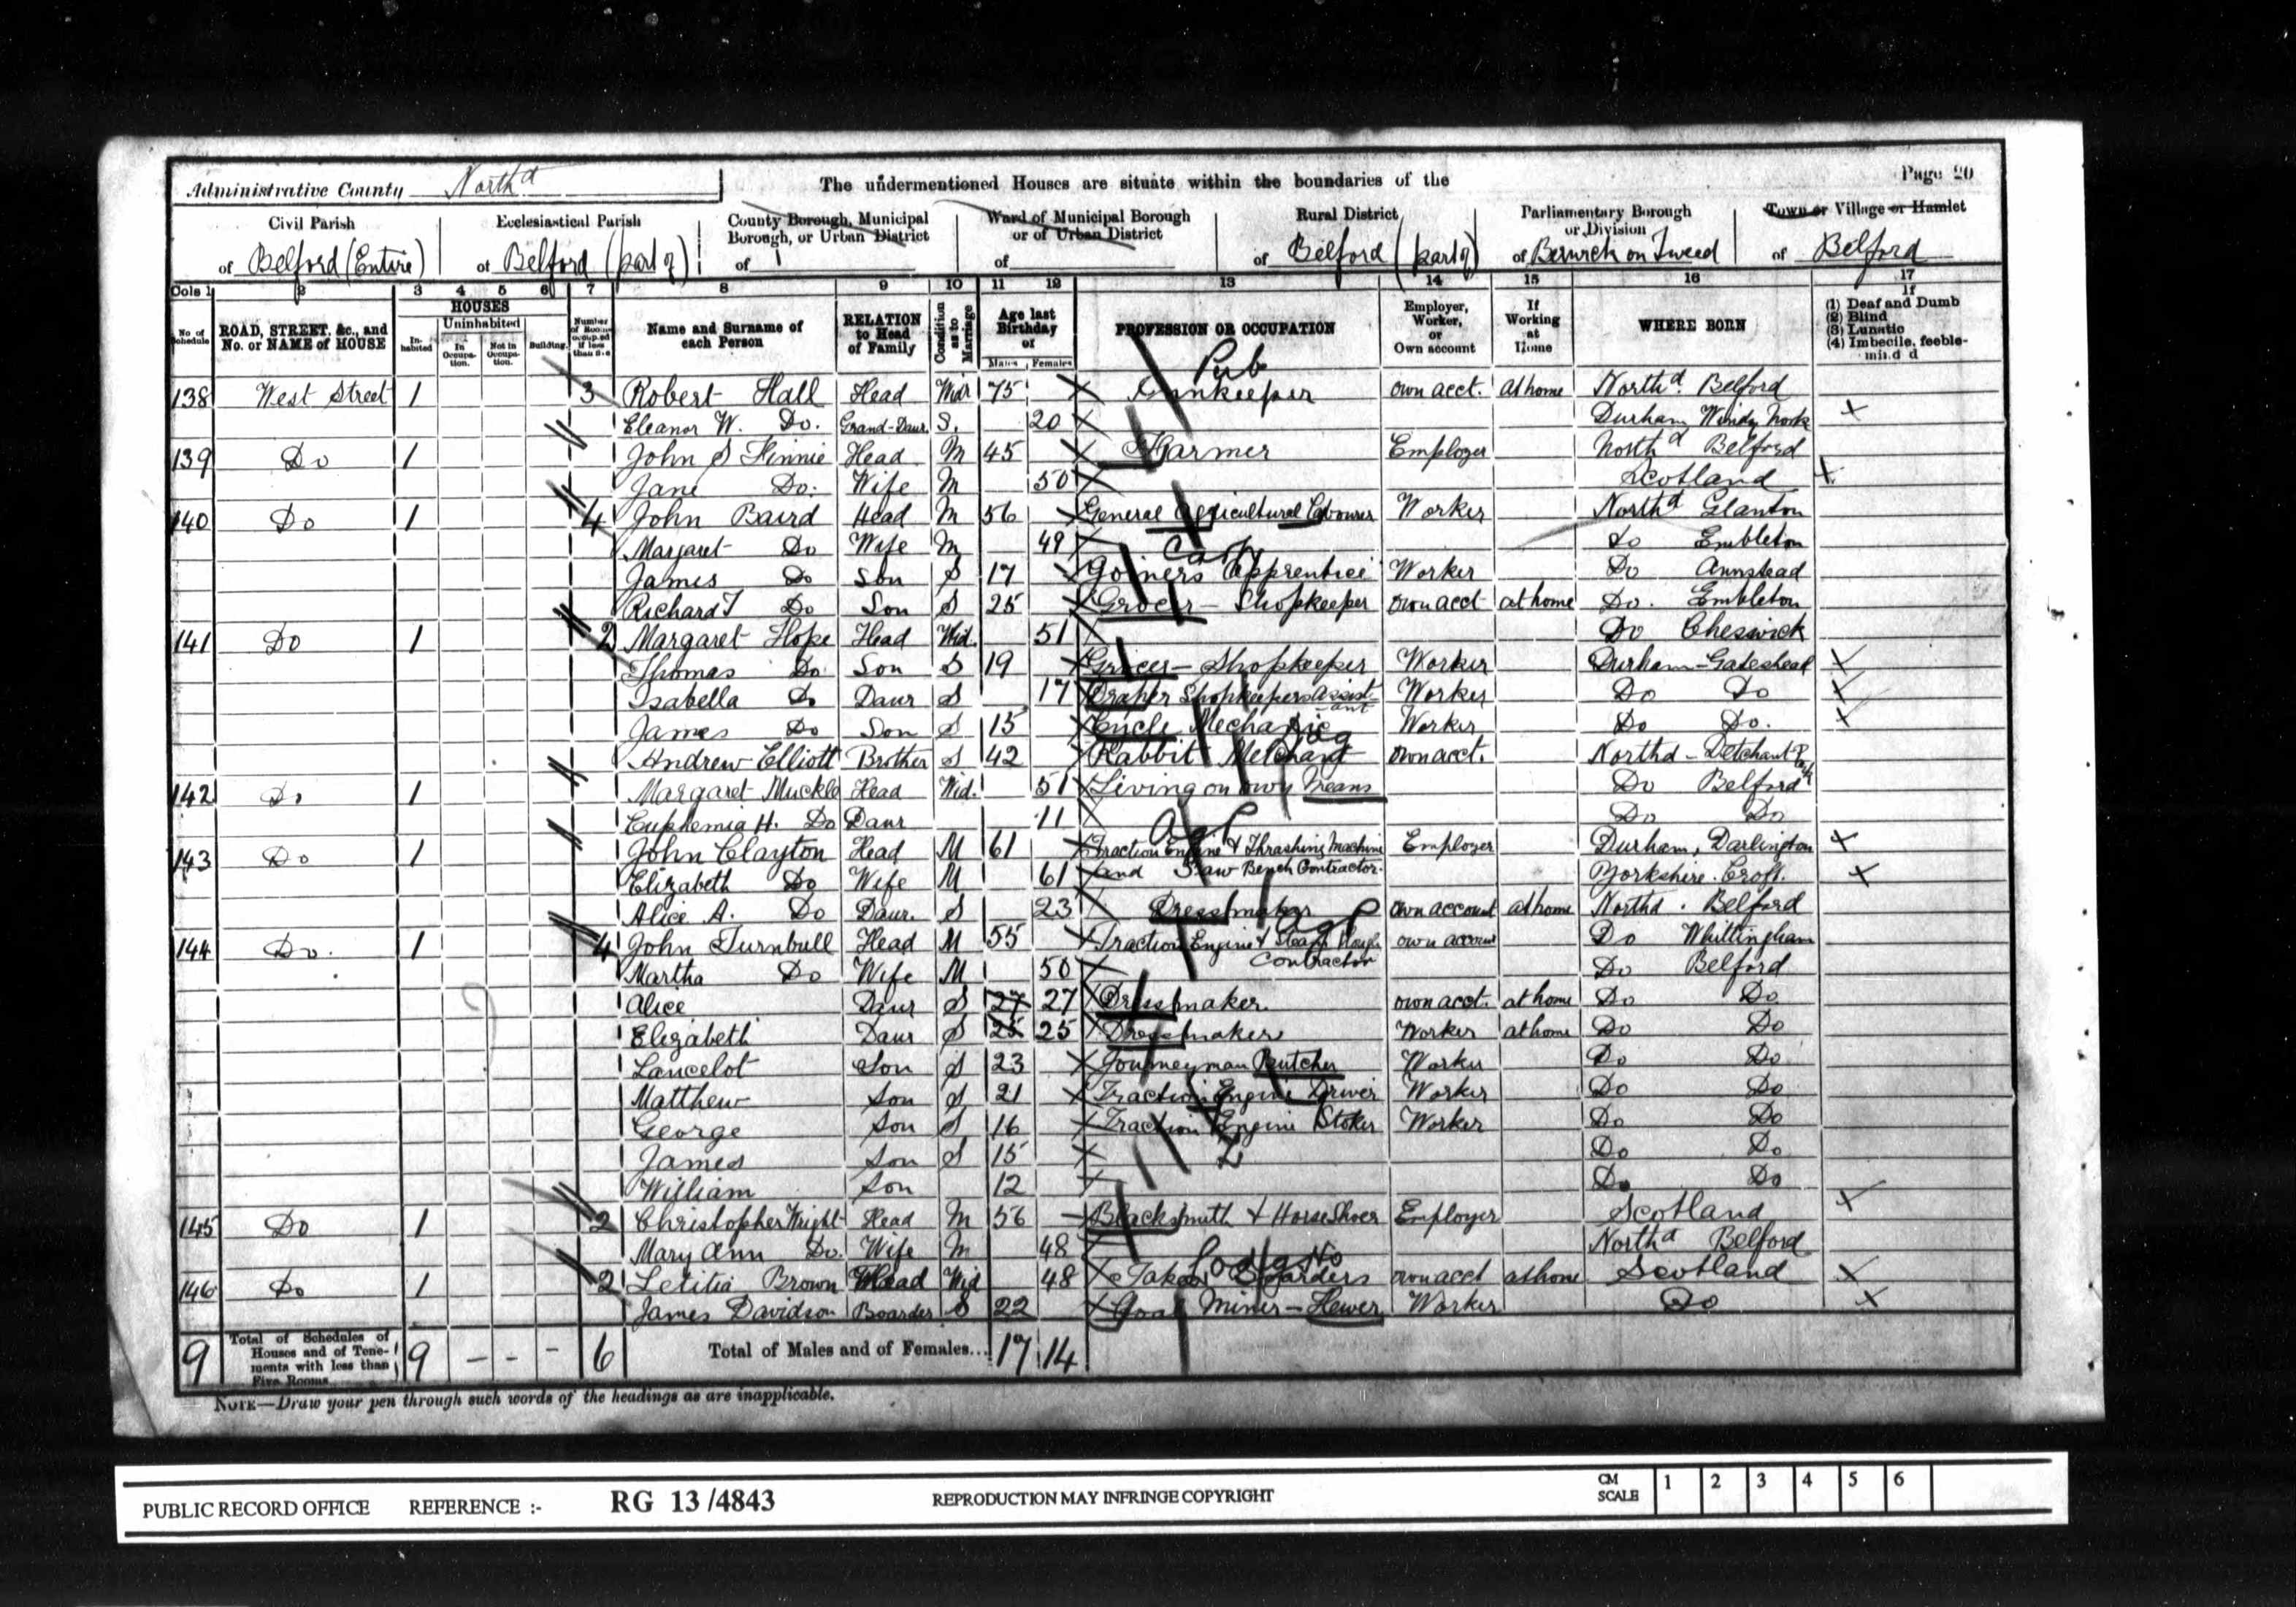 Administrative County North^d The undermentioned Houses are situate within the boundaries of the Page 20
Civil Parish Ecclesiastical Parish County Borough, Municipal Borough, or Urban District Ward of Municipal Borough or of Urban District Rural District Parliamentary Borough or Division Town or Village or Hamlet
of Belford (Entire) of Belford (part of) of of of Belford (part of) of Berwick on Tweed of Belford
Cols 1 2 3 4 5 6 7 8 9 10 11 12 13 14 15 16 17
No. of Schedule ROAD, STREET, &c., and No. or NAME of HOUSE HOUSES Inhabited Uninhabited In Occupation. Not in Occupation. Building. Number of Rooms occupied if less than five Name and Surname of each Person RELATION to Head of Family Condition as to Marriage Age last Birthday of Males Females PROFESSION OR OCCUPATION Employer, Worker, or Own account If Working at Home WHERE BORN If (1) Deaf and Dumb (2) Blind (3) Lunatic (4) Imbecile, feeble-minded
Pub
138 West Street 1 3 Robert Hall Head Wid^r 75 X Innkeeper own acct. at home North^d. Belford
Eleanor W. Do. Grand-Daur. S. 20 X Durham Windy Nook X
139 Do 1 John S Finnie Head M 45 X Farmer Employer North^d Belford
Jane Do. Wife M 50 X Scotland X
140 Do 1 4 John Baird Head M 56 X General Agricultural Labourer Worker North^d Glanton
Margaret Do Wife M 49 X Do Embleton
James Do Son S 17 X Joiner's Apprentice Worker Do Annstead
Richard T Do Son S 25 X Grocer - Shopkeeper own acct at home Do. Embleton
141 Do 1 2 Margaret Hope Head Wid. 51 X Do Cheswick
Thomas Do Son S 19 X Grocer - Shopkeeper Worker Durham - Gateshead X
Isabella Do Daur S 17 X Draper Shopkeepers Assistant Worker Do Do X
James Do Son S 15 X Cycle Mechanic Worker Do Do. X
Andrew Elliott Brother S 42 X Rabbit Merchant own acct. Northd - Detchant
142 Do 1 Margaret Muckle Head Wid. 51 X Living on own Means Do Belford
Euphemia H. Do Daur 11 X Do Do
Agl
143 Do 1 John Clayton Head M 61 X Traction Engine & Thrashing Machine Employer Durham, Darlington X
Elizabeth Do Wife M 61 X and Saw Bench Contractor. Yorkshire. Croft. X
Alice A. Do Daur. S 23 X Dressmaker own account at home Northd. Belford
144 Do. 1 4 John Turnbull Head M 55 X Traction Engine & Steam Plough own account Do Whittingham
Contractor
Martha Do Wife M 50 X Do Belford
Alice Daur S 27 27 X Dressmaker. own acct. at home Do Do
Elizabeth Daur S 25 25 X Dressmaker Worker at home Do Do
Lancelot Son S 23 X Journeyman Butcher Worker Do Do
Matthew Son S 21 X Traction Engine Driver Worker Do Do
George Son S 16 X Traction Engine Stoker Worker Do Do
James Son S 15 X Do Do
William Son 12 X Do Do
145 Do 1 2 Christopher Wright Head M 56 Blacksmith & Horse Shoer Employer Scotland X
Mary Ann Do. Wife M 48 X North^d Belford
146 Do 1 2 Letitia Brown Head Wid 48 X Takes Boarders own acct at home Scotland X
James Davidson Boarder S 22 X Coal Miner - Hewer Worker Do X
9 Total of Schedules of Houses and of Tenements with less than Five Rooms 9 - - - 6 Total of Males and of Females... 17 14
NOTE—Draw your pen through such words of the headings as are inapplicable.
PUBLIC RECORD OFFICE REFERENCE :- RG 13/4843 REPRODUCTION MAY INFRINGE COPYRIGHT CM SCALE 1 2 3 4 5 6